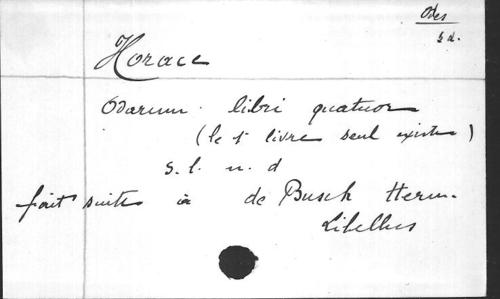 Odes
s.d.
Horace
Odarum libri quatuor
(le 1r livre seul existe)
s. l. n. d
fait suite à de Busch Herm.
Libellus